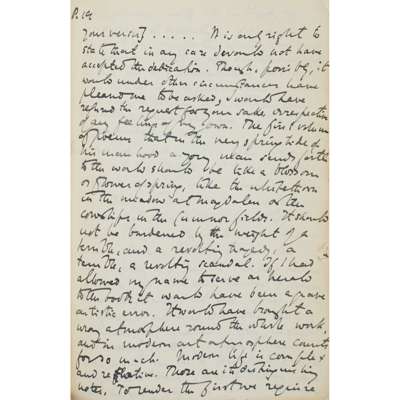 P. 14
your verses] . . . . . It is only right to
state that in any case I would not have
accepted the dedication. Though, possibly, it
would under other circumstances have
pleased me to be asked, I would have
refused the request for your sake, irrespective
of any feelings of my own. The first volume
of poems that in the very springtide of
his manhood a young man sends forth
to the world should be like a blossom
or flower of spring, like the whitethorn
in the meadow at Magdalen or the
cowslips in the Cumnor fields. It should
not be burdened by the weight of a
terrible, and a revolting tragedy, a
terrible, a revolting scandal. If I had
allowed my name to serve as herald
to the book it would have been a grave
artistic error. It would have brought a
wrong atmosphere round the whole work,
and in modern art atmosphere counts
for so much. Modern life is complex
and relative. Those are its distinguishing
notes. To render the first we require